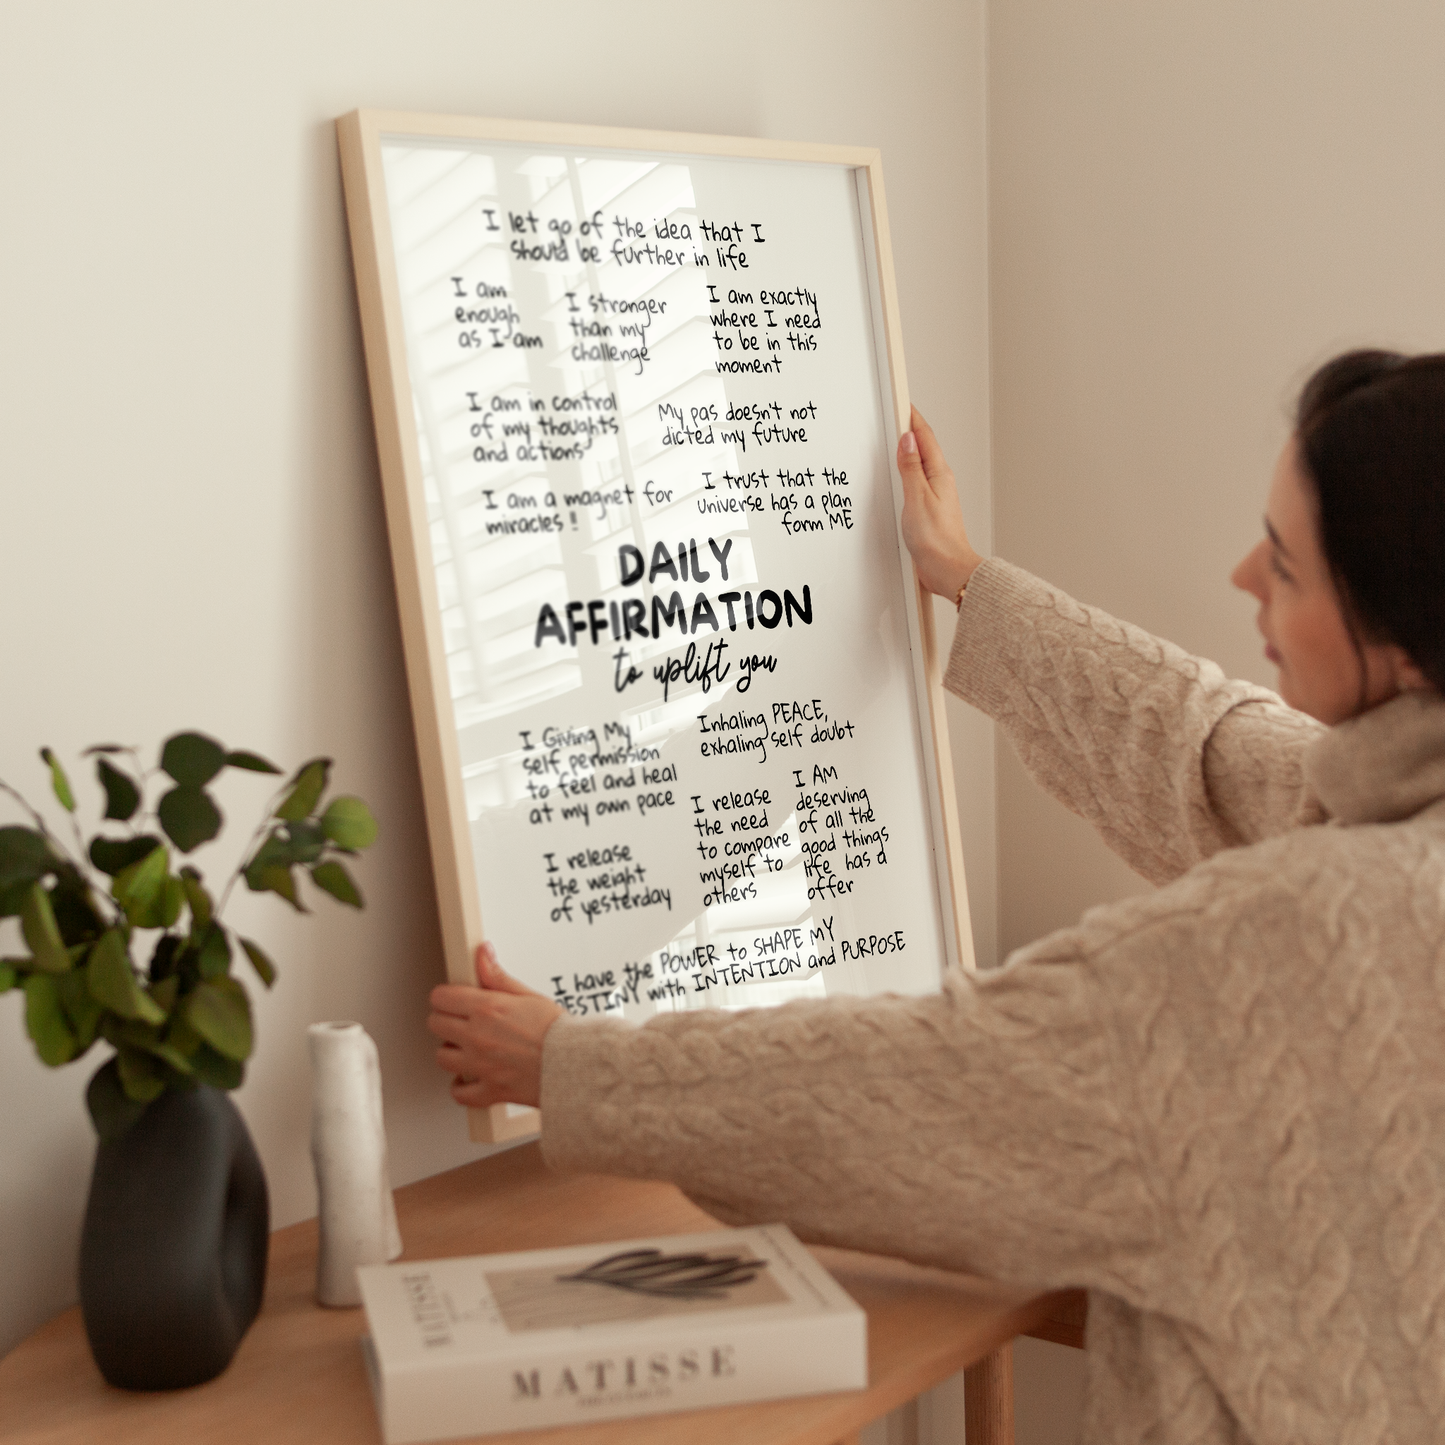 I let go of the idea that I
should be further in life
I am
enough
as I am
I stronger
than my
challenge
I am exactly
where I need
to be in this
moment
I am in control
of my thoughts
and actions
My pas doesn't not
dicted my future
I am a magnet for
miracles !
I trust that the
universe has a plan
form ME
DAILY
AFFIRMATION
to uplift you
I Giving My
self permission
to feel and heal
at my own pace
Inhaling PEACE,
exhaling self doubt
I release
the need
to compare
myself to
others
I AM
deserving
of all the
good things
life has a
offer
I release
the weight
of yesterday
I have the POWER to SHAPE MY
DESTINY with INTENTION and PURPOSE
MATISSE
MATISSE